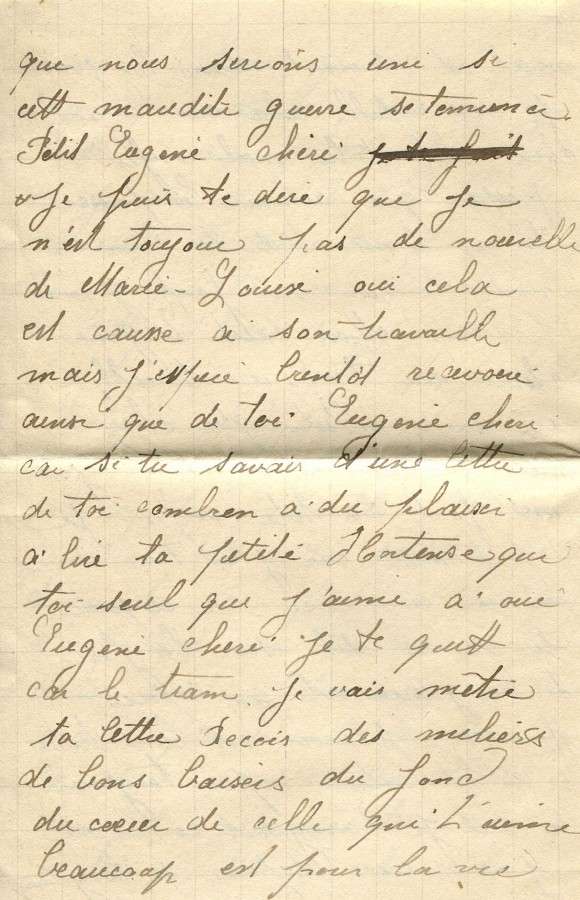 que nous serions uni si
cett maudite guerre se terminé
Petit Eugene cheri je te fait
Je puis te dire que je
n'est toujour pas de nouvelle
de Marie-Louise oui cela
est causse a son travaille
mais j'espere bientôt recevoir
ainsi que de toi Eugene cheri
car si tu savais d'une lettre
de toi combien a du plaisir
a lire ta petite Hortense que
toi seul que j'aime a oui
Eugene cheri je te quitt
car le tram je vais mètre
ta lettre Recois des miliers
de bons baisers du fond
du cœur de celle qui t'aime
beaucoup est pour la vie